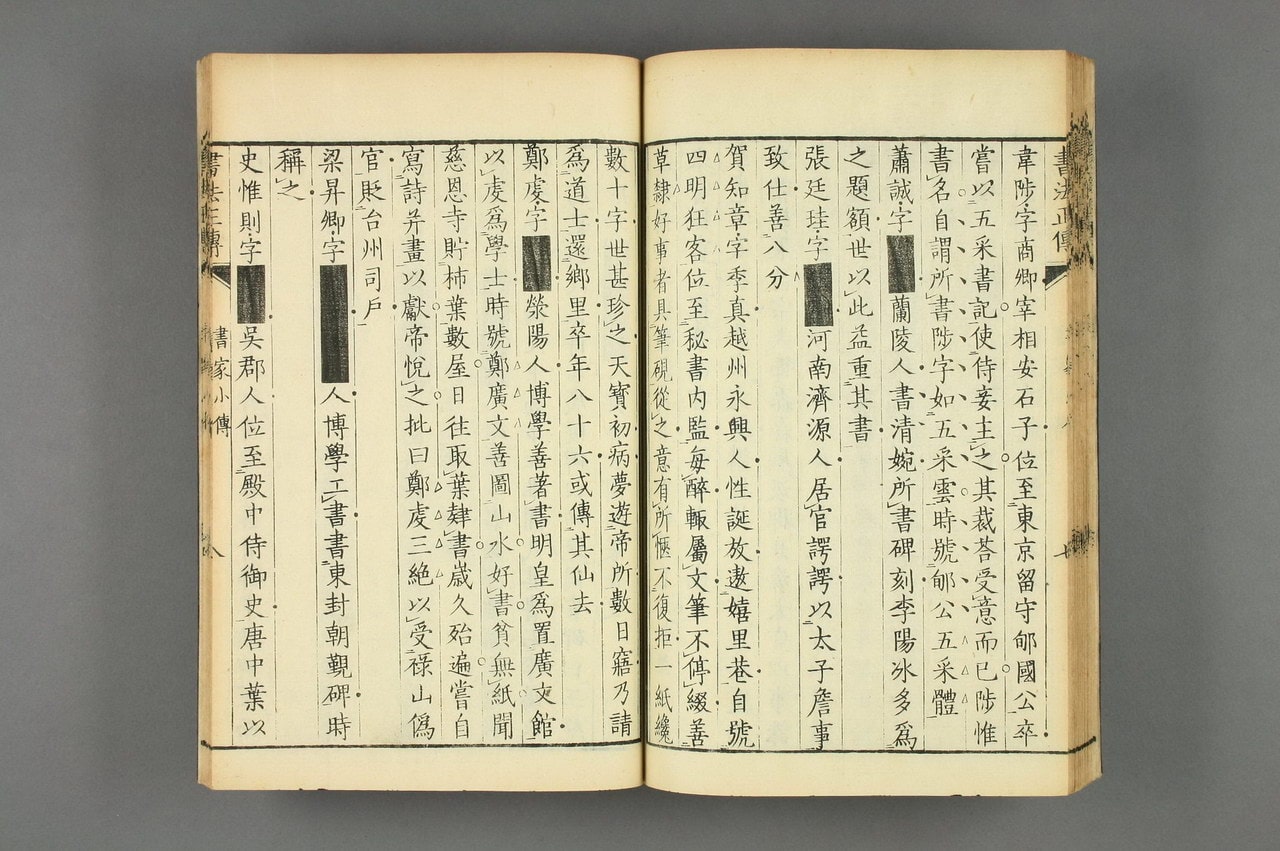 書法正傳
韋陟字商卿宰相安石子位至東京留守郇國公卒
嘗以五采書記使侍妾主之其裁荅受意而已陟惟
書名自謂所書陟字如五采雲時號郇公五采體
蕭誠字蘭陵人書清婉所書碑刻李陽冰多爲
之題額世以此益重其書
張廷珪字河南濟源人居官諤諤以太子詹事
致仕善八分
賀知章字季真越州永興人性誕放遨嬉里巷自號
四明狂客位至秘書内監每醉輒屬文筆不停綴善
草隸好事者具筆硯從之意有所愜不復拒一紙纔
數十字世甚珍之天寶初病夢遊帝所數日寤乃請
爲道士還鄉里卒年八十六或傳其仙去
鄭虔字滎陽人博學善著書明皇爲置廣文館
以虔爲學士時號鄭廣文善圖山水好書貧無紙聞
慈恩寺貯柿葉數屋日往取葉肄書歲久殆遍嘗自
寫詩并畫以獻帝悅之批曰鄭虔三絶以受祿山僞
官貶台州司戶
梁昇卿字人博學工書書東封朝覲碑時
稱之
史惟則字吳郡人位至殿中侍御史唐中葉以
書法正傳
書家小傳
八